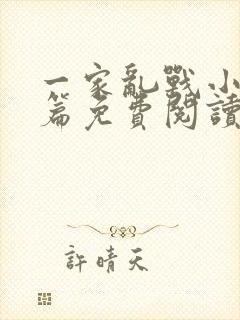 一家亂戰小
篇免費閱讀
許晴天